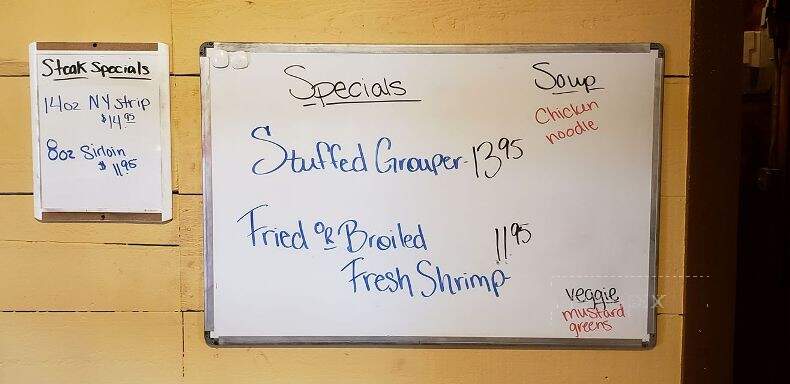 Steak Specials
14oz NY strip
$14.95
8oz Sirloin
$11.95
Specials
Stuffed Grouper-13.95
Fried OR Broiled
11.95
Fresh Shrimp
Soup
Chicken
noodle
veggie
mustard
greens